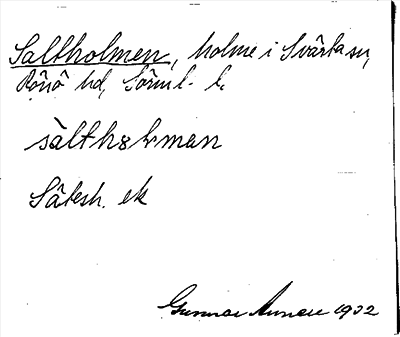 Saltholmen, holme i Svärta sn,
Rönö hd, Sörml. l.
sàlthɷlman
Sätesh. ek
Gunnar 1932